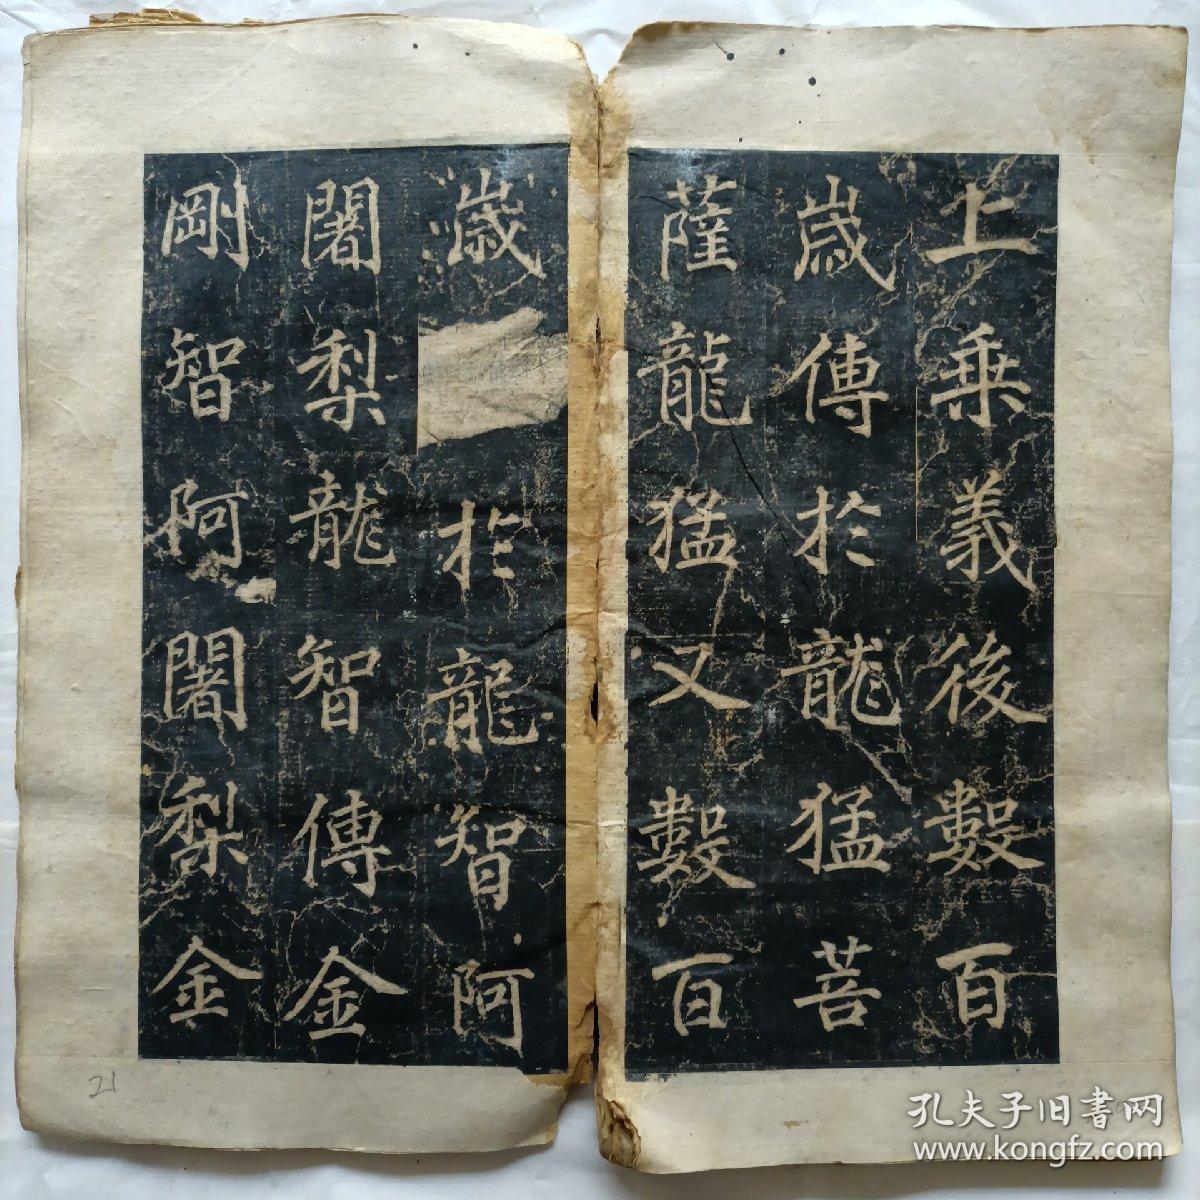 上乗義後數百
歲傳於龍猛菩
薩龍猛又數百
歲於龍智阿
闍梨龍智傳金
剛智阿闍梨金
21
孔夫子旧書网
www.kongfz.com